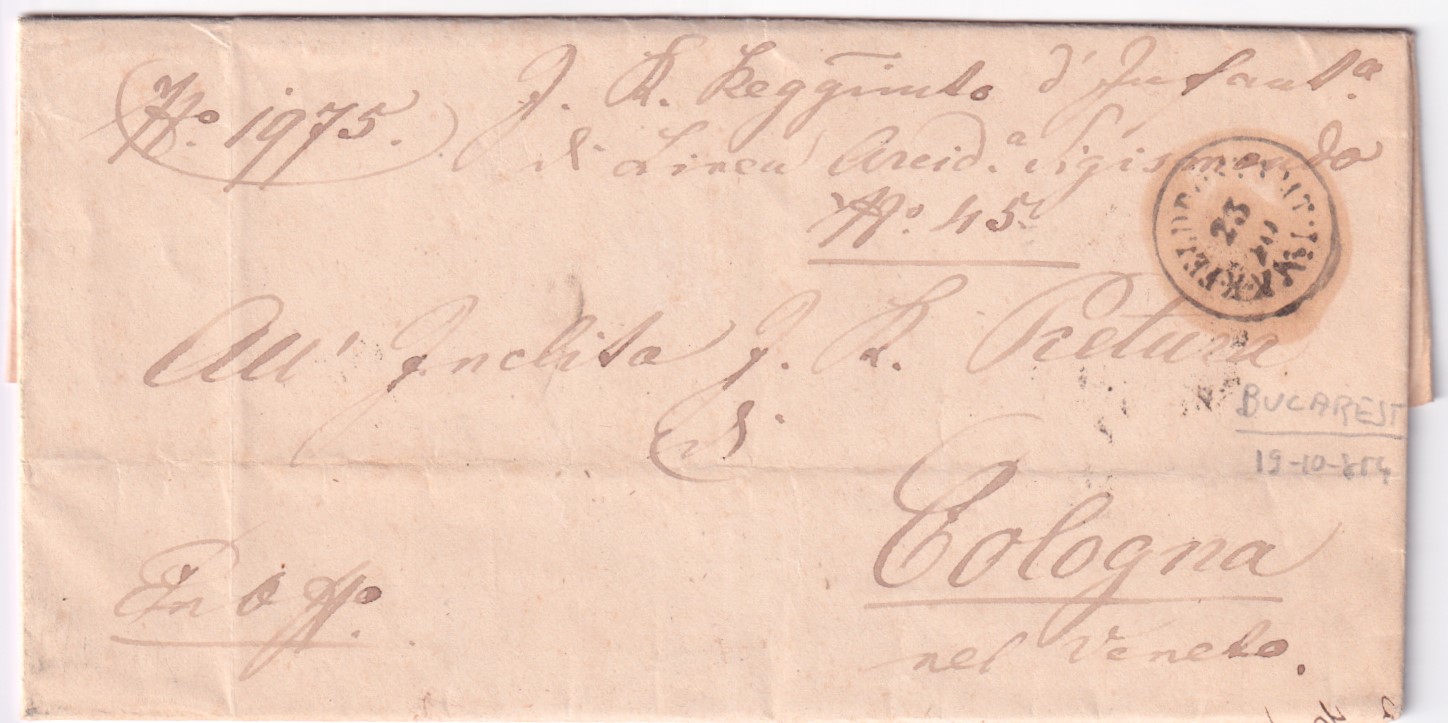 No. 1975.
I. R. Reggimto d'Infant.a
di Linea Arcid.a Sigismondo
No. 45
23
10
All' Inclita I. R. Pretura
di
BUCAREST
19-10-854
Cologna
In Off.o
nel Veneto.